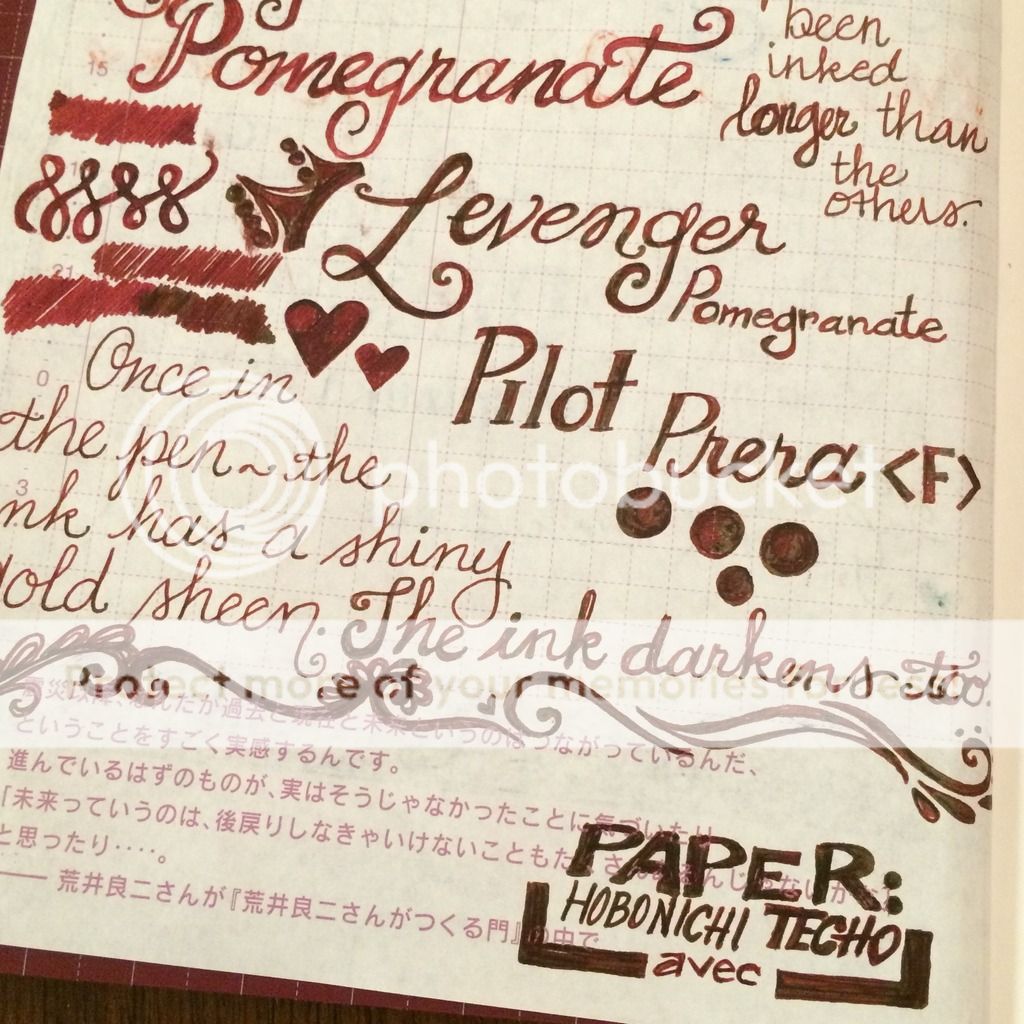 Pomegranate
been
inked
longer than
the
others.
15
Levenger
Pomegranate
21
Pilot
Prera <F>
Once in
0
the pen~ the
3
ink has a shiny
gold sheen. The ink darkens too.
photobucket
Protect more of your memories for less!
震災以降、なんだか過去と現在と未来というのはつながっているんだ、
ということをすごく実感するんです。
進んでいるはずのものが、実はそうじゃなかったことに気づいたり、
「未来っていうのは、後戻りしなきゃいけないこともたくさんあるんじゃないかな」
と思ったり‥‥。
── 荒井良二さんが『荒井良二さんがつくる門』の中で
PAPER:
HOBONICHI TECHO
avec